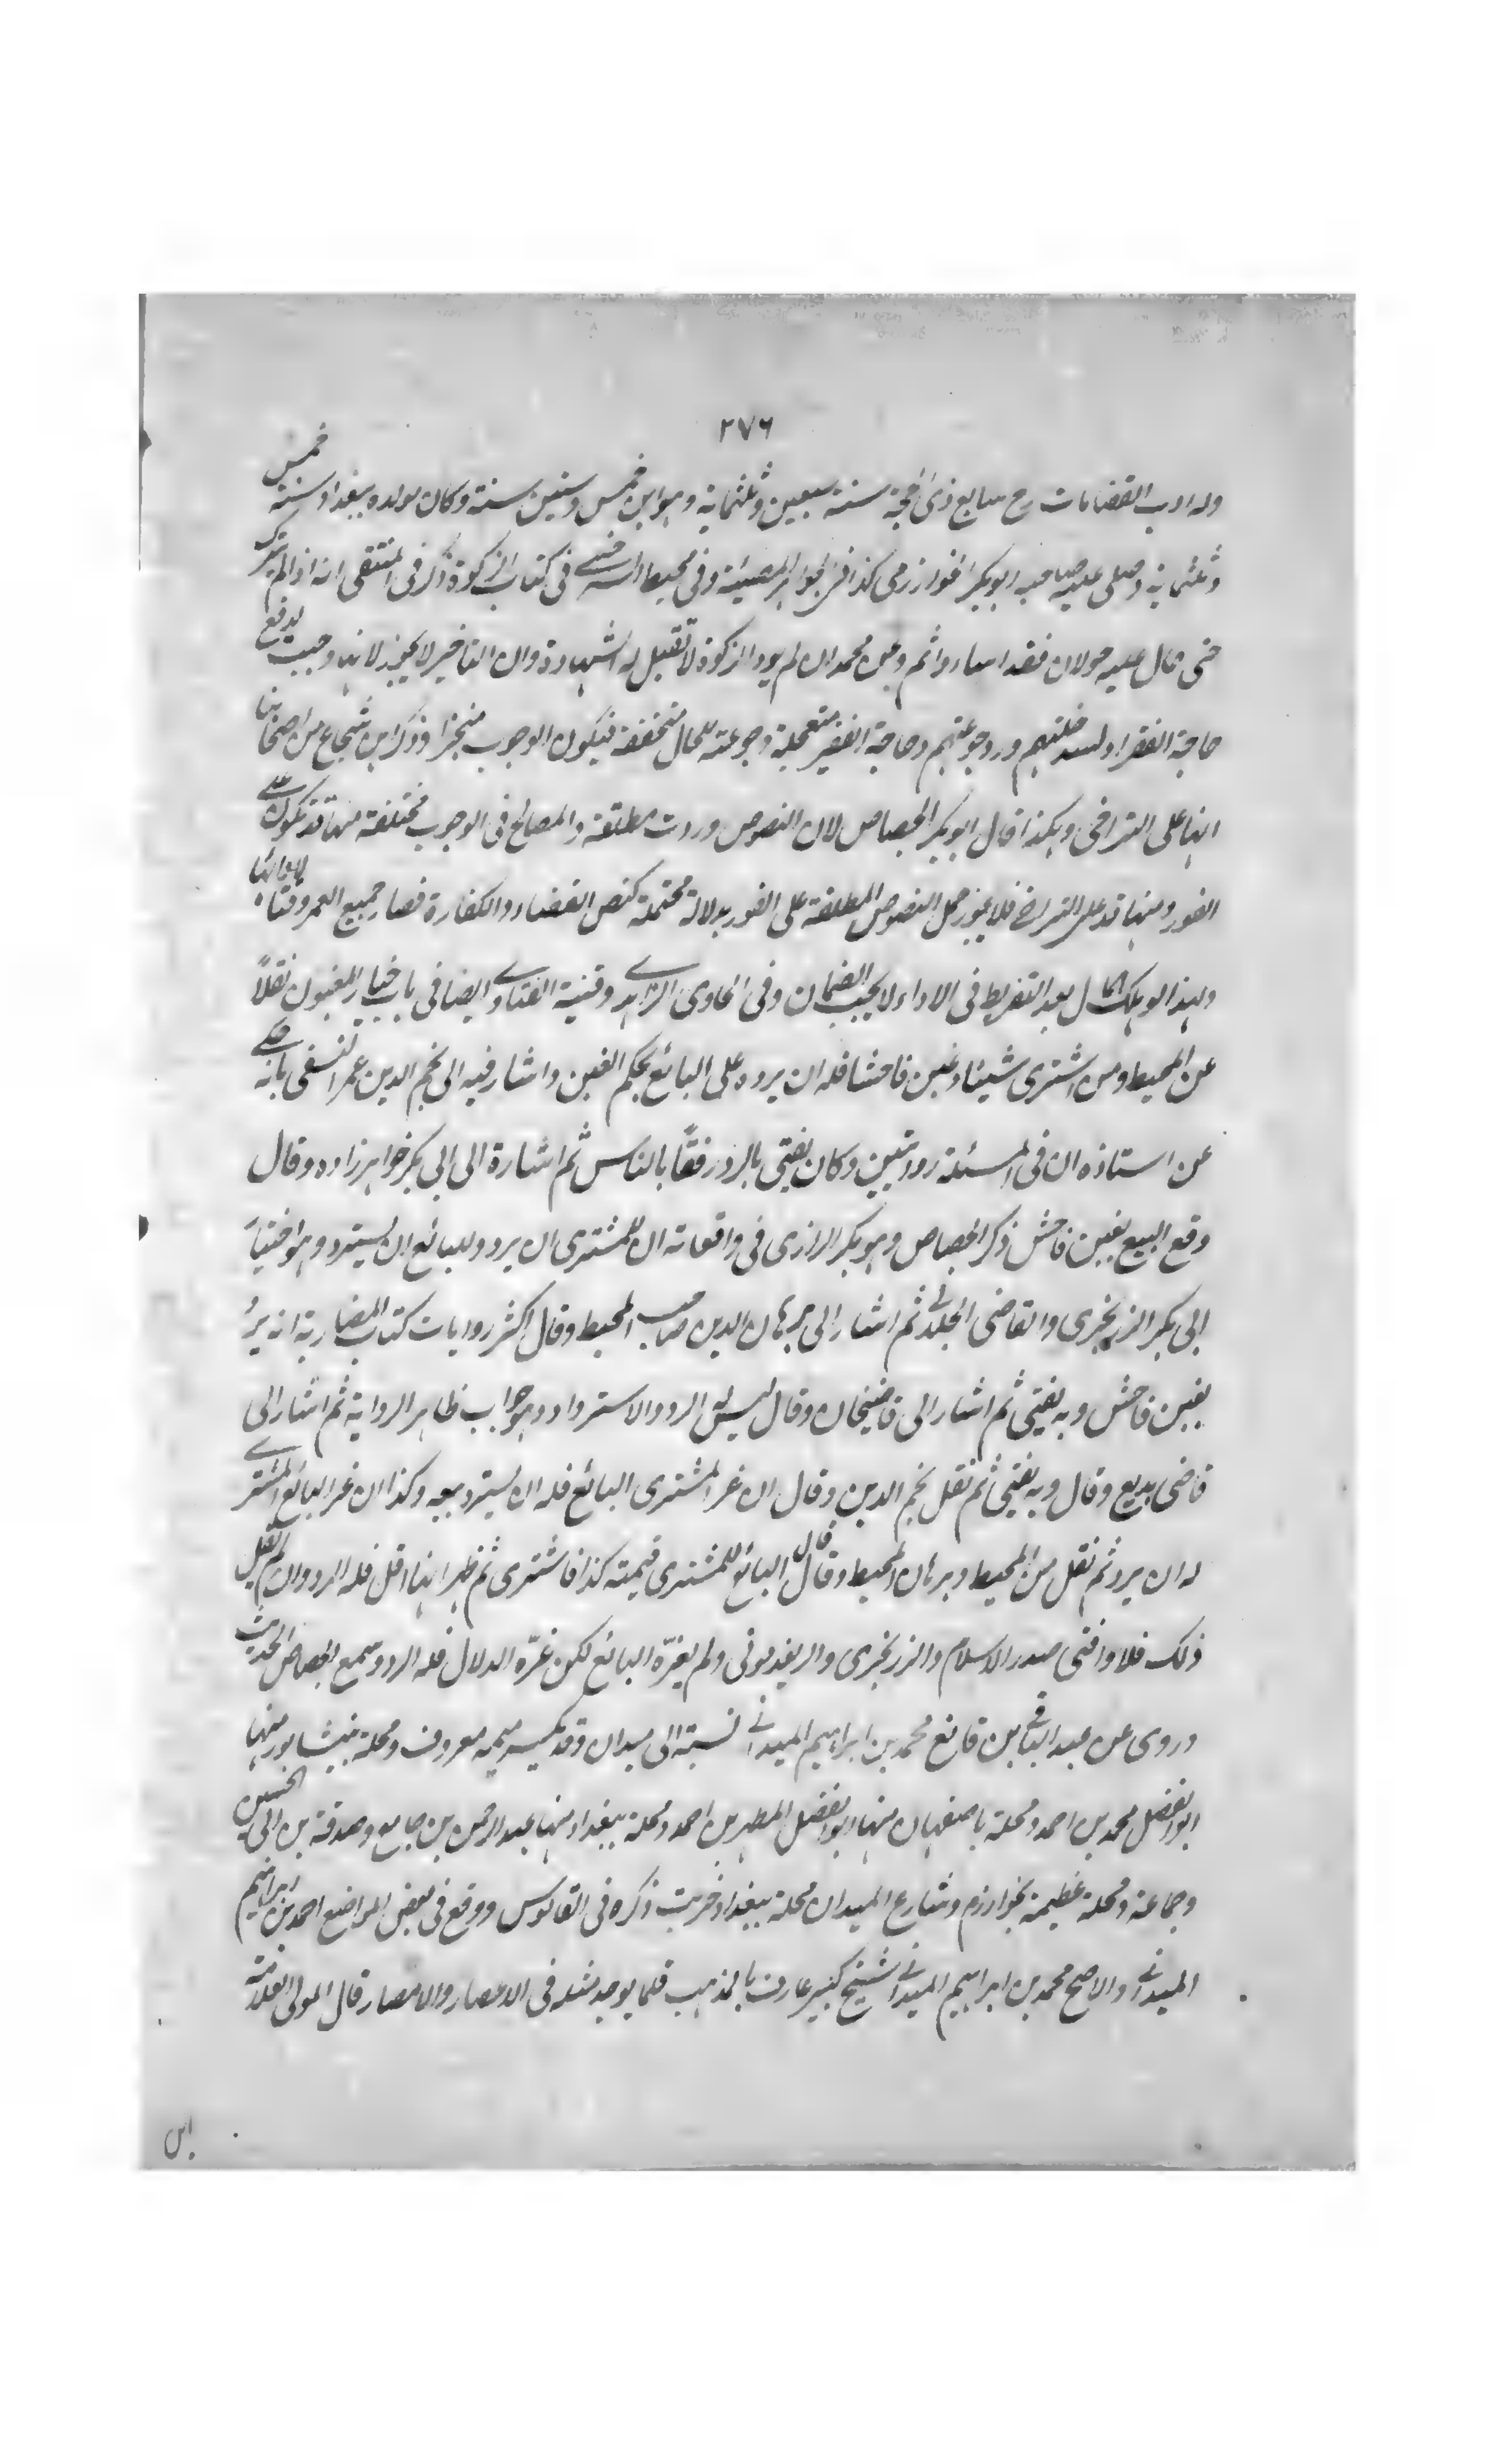 ٢٧٦
وله ادب القضا مات رح سابع ذى الحجة سنة سبعين وثلثمائة وهو ابن خمس وستين سنة وكان مولده ببغداد سنة خمس
وثلثمائة وصلى عليه صاحبه ابو بكر الخوارزمى كذا فى الجواهر المضيئة وفى محيط السرخسے فى كتاب الزكوة ذكر فى المنتقى انه اذا لم يترك
حتى حال عليه حولان فقد اساء واثم وعن محمد ان لم يود الزكوة لا تقبل له الشهادة وان التاخير لا يجوز لانها وجبت لدفع
حاجة الفقراء ولسد خلتهم وردجوعتهم وحاجة الفقير متعجلة وجوعته للحال متحققة فيكون الوجوب منجزا وذكر ابن شجاع من اصحابنا
انها على التراخى وهكذا قال ابو بكر الجصاص لان النصوص وردت مطلقة والمصالح فى الوجوب مختلفة منها قد تكون علے
الفور ومنها قد على التراخے فلا يجوز حمل النصوص المطلقة على الفور بدلالة محتملة كنص القضاء والكفارة فصار جميع العمر وقتا لادائها
ولهذا لو هلك المال بعد التفريط فى الاداء لا يجب الضمان وفى الحاوى الزاهدے وقنية الفتاوے ايضا فى باب خيار المغبون نقلاً
عن المحيط ومن اشترى شيئا وغبن فاحشا فله ان يرده على البائع بحكم الغبن واشار فيه الى نجم الدين عمر النسفى بانه حكے
عن استاذه ان فى المسئلة روايتين وكان يفتى بالرد رفقًا بالناس ثم اشارة الى ابى بكر خواهرزاده وقال
وقع البيع بغبن فاحش ذكر الجصاص وهو بكر الرازى فى واقعاته ان للمشترى ان يرد وللبائع ان يسترد وهو اختيار
ابى بكر الزرنجرى والقاضى الجلالے ثم اشار الى برهان الدين صاحب المحيط وقال اكثر روايات كتاب المضاربة انه يردُ
بغبن فاحش وبه يفتى ثم اشار الى قاضيخان وقال ليس له الرد والاسترداد وهو جواب ظاهر الرواية ثم اشار الى
قاضى بديع وقال وبه يفتى ثم نقل نجم الدين وقال ان غر المشترى البائع فله ان يسترد بيعه وكذا ان غر البائع المشترے
له ان يرد ثم نقل من المحيط وبرهان المحيط وقال قال البائع للمشترى قيمته كذا فاشترى ثم ظهر انها اقل فله الرد وان لم يقل
ذلك فلا وافتى صدر الاسلام والزرنجرى والريغدمونى ولم يغرّه البائع لكن غرّه الدلال فله الرد وسمع الجصاص الحديث
وروى عن عبد الباقے بن قانع محمد بن ابراهيم الميدانے نسبة الى ميدان وقد تكسر ميمه معروف ومحلة بنيشابور منها
ابو الفضل محمد بن احمد ومحلة باصفهان منها ابو الفضل المطهر بن احمد ومحلة ببغداد منها عبد الرحمن بن جامع وصدقة بن ابى الحسين
وجماعة ومحلة عظيمة بخوارزم وشارع الميدان محلة ببغداد خربت ذكره فى القاموس ووقع فى بعض المواضع احمد بن ابراهيم
الميدانے والاصح محمد بن ابراهيم الميدانے شيخ كبير عارف بالمذهب قلما يوجد مثله فى الاعصار والامصار قال المولى العلامة
ابن